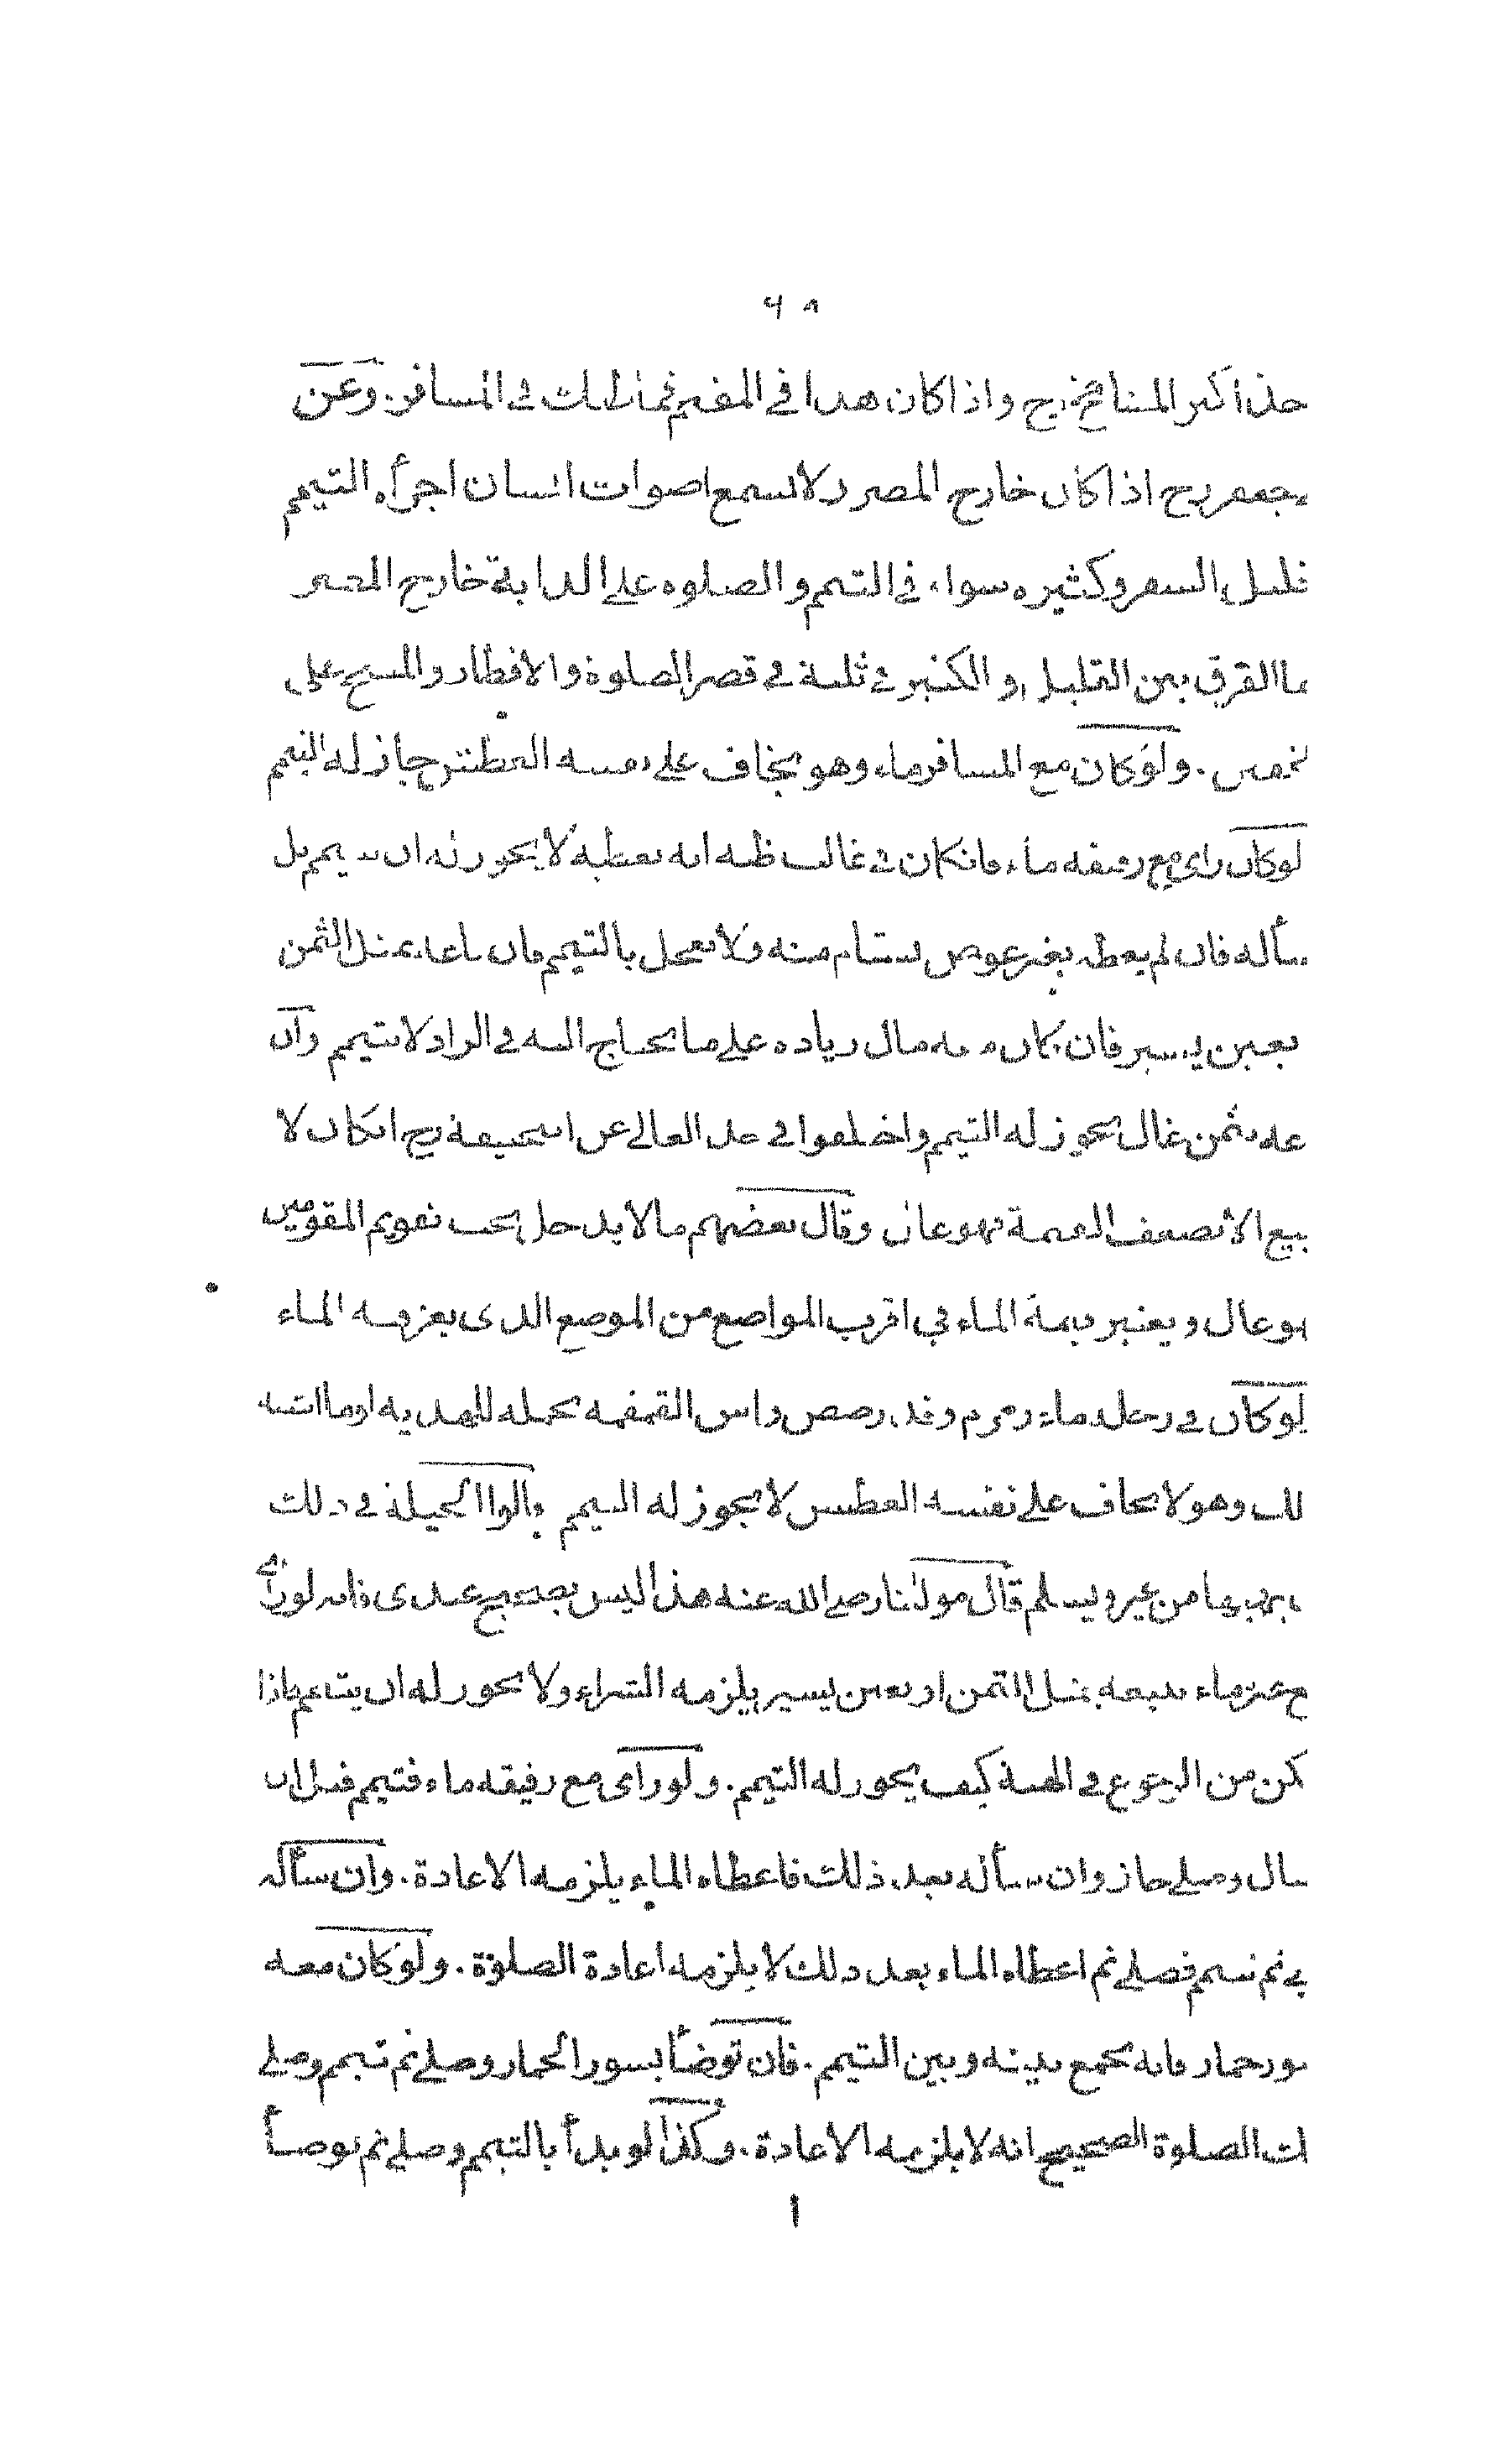 ٦٨
اخذ اكثر المشايخ رح واذا كان هذا في المقيم فما ظنك في المسافر. وعن
جعفر رح اذا كان خارج المصر ولا يسمع اصوات انسان اجزأه التيمم
قليل السفر وكثيره سواء في التيمم والصلوة على الدابة خارج المصر
ما الفرق بين القليل والكثير في ثلثة في قصر الصلوة والافطار والمسح على
الخفين. ولو كان مع المسافر ماء وهو يخاف على نفسه العطش جاز له التيمم
لو كان راى مع رفيقه ماء فان كان في غالب ظنه انه يعطيه لا يجوز له ان يتيمم بل
سأله فان لم يعطه بغير عوض يستام منه ولا يعجل بالتيمم فان باعه بمثل الثمن
بغبن يسير فان كان معه مال زيادة على ما يحتاج اليه في الزاد لا يتيمم وان
باعه بثمن غال يجوز له التيمم واختلفوا في حد الغالي عن ابيحنيفة رح ان كان لا
يبيع الا بضعف القيمة فهو غال وقال بعضهم ما لا يدخل تحت تقويم المقومين
هو غال ويعتبر قيمة الماء في اقرب المواضع من الموضع الذي يعز فيه الماء
لو كان في رحله ماء زمزم وقد رصص راس القمقمة يحمله للهدية او ما اشبه
ذلك وهو لا يخاف على نفسه العطش لا يجوز له التيمم قالوا الحيلة في ذلك
يهبها من غيره ويسلم قال مولانا رضي الله عنه هذا ليس بصحيح عندى فانه لو رأى
مع غيره ماء يبيعه بمثل الثمن او بغبن يسير يلزمه الشراء ولا يجوز له ان يتيمم فاذا
تمكن من الرجوع في الهبة كيف يجوز له التيمم. ولو راى مع رفيقه ماء فتيمم قبل ان
يسال وصلى جاز وان سأله بعد ذلك فاعطاه الماء يلزمه الاعادة. وان سأله
ابى ثم تيمم فصلى ثم اعطاه الماء بعد ذلك لا يلزمه اعادة الصلوة. ولو كان معه
سور حمار فانه يجمع بينه وبين التيمم. فان توضأ بسور الحمار وصلى ثم تيمم وصلى
تلك الصلوة الصحيح انه لا يلزمه الاعادة. وكذا لو بدأ بالتيمم وصلى ثم توضأ